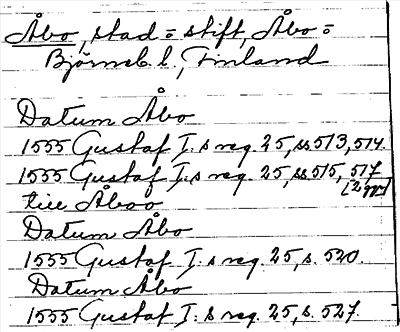 Åbo, stad = stift, Åbo =
Björneb. l., Finland
Datum Åbo
1555 Gustaf I:s reg. 25, ss 513, 514.
1555 Gustaf I:s reg. 25, ss 515, 517
(2 gr)
till Åbo
Datum Åbo
1555 Gustaf I:s reg. 25, s. 520.
Datum Åbo
1555 Gustaf I:s reg. 25, s. 527.